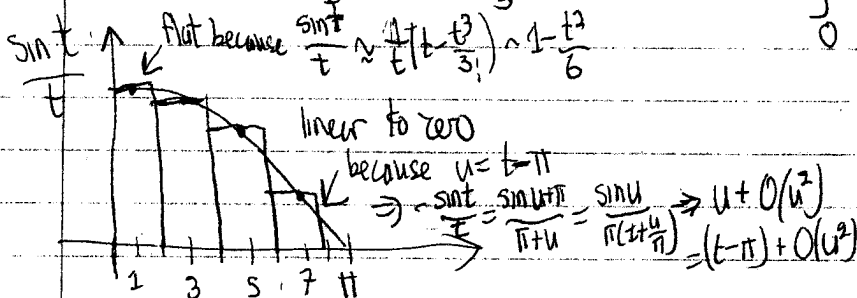 flat because sin t/t ≈ 1/t(t - t³/3!) ~ 1 - t²/6
0
sin t/t
linear to zero
because u = t-π
⇒ - sin t/t = sin u+π/π+u = sin u/π(1+u/π) ⇒ u + O(u²)
= (t-π) + O(u²)
1 3 5 7 π